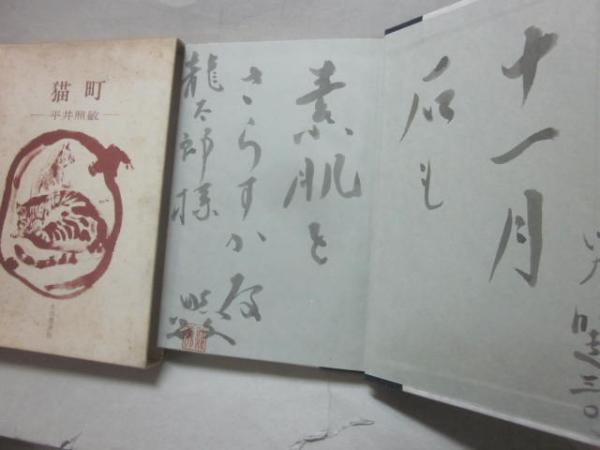 猫町
平井照敏
十一月
石も
素肌を
さらすかな
龍太郎様
照敏